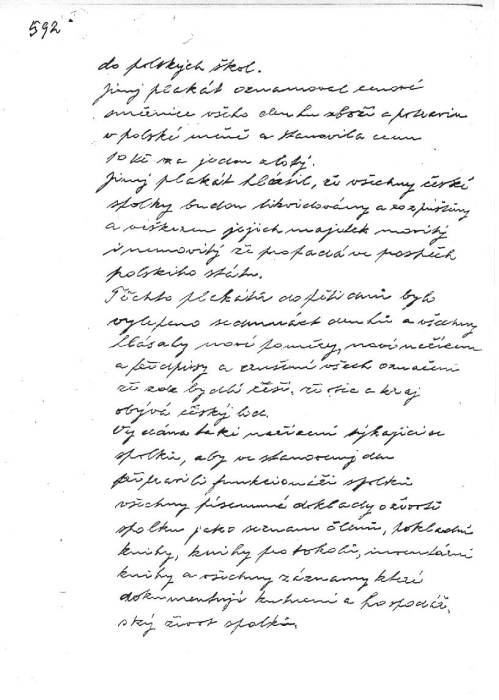 592
do polských škol.
Jiný plakát oznamoval cenové
směrnice všeho druhu zboží a potravin
v polské měně a stanovila cenu
10 Kč za jeden zlotý.
Jiný plakát hlásil, že všechny české
spolky budou likvidovány a rozpuštěny
a veškeren jejich majetek movitý
i nemovitý že propadá ve prospěch
polského státu.
Těchto plakátů do pěti dnů bylo
vylepeno sedmnáct druhů a všechny
hlásaly nové poměry, nová nařízení
a předpisy a zrušení všech označení
že zde bydlí češi, že sice a kraj
obývá český lid.
Vydána také nařízení týkající se
spolků, aby ve stanovený den
připravili funkcionáři spolků
všechny písemné doklady o životě
spolku jako seznam členů, pokladní
knihy, knihy protokolů, inventární
knihy a všechny záznamy které
dokumentují kulturní a hospodář.
ský život spolků.